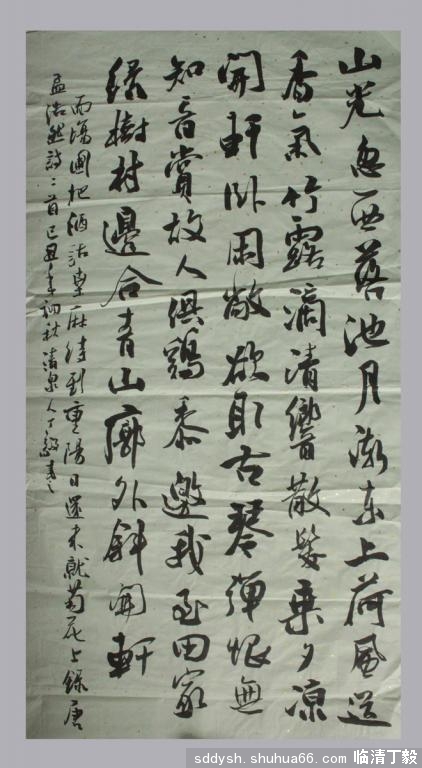 山光忽西落池月漸東上荷風送
香氣竹露滴清響散髮乘夕凉
開軒卧閑敞欲取古琴彈恨無
知音賞故人俱鷄黍邀我至田家
緑樹村邊合青山廓外斜開軒
面場圃把酒話桑麻待到重陽日還來就菊花上録唐
孟浩然詩二首己丑年初秋清泉人丁毅書
sddysh.shuhua66.com 临清丁毅